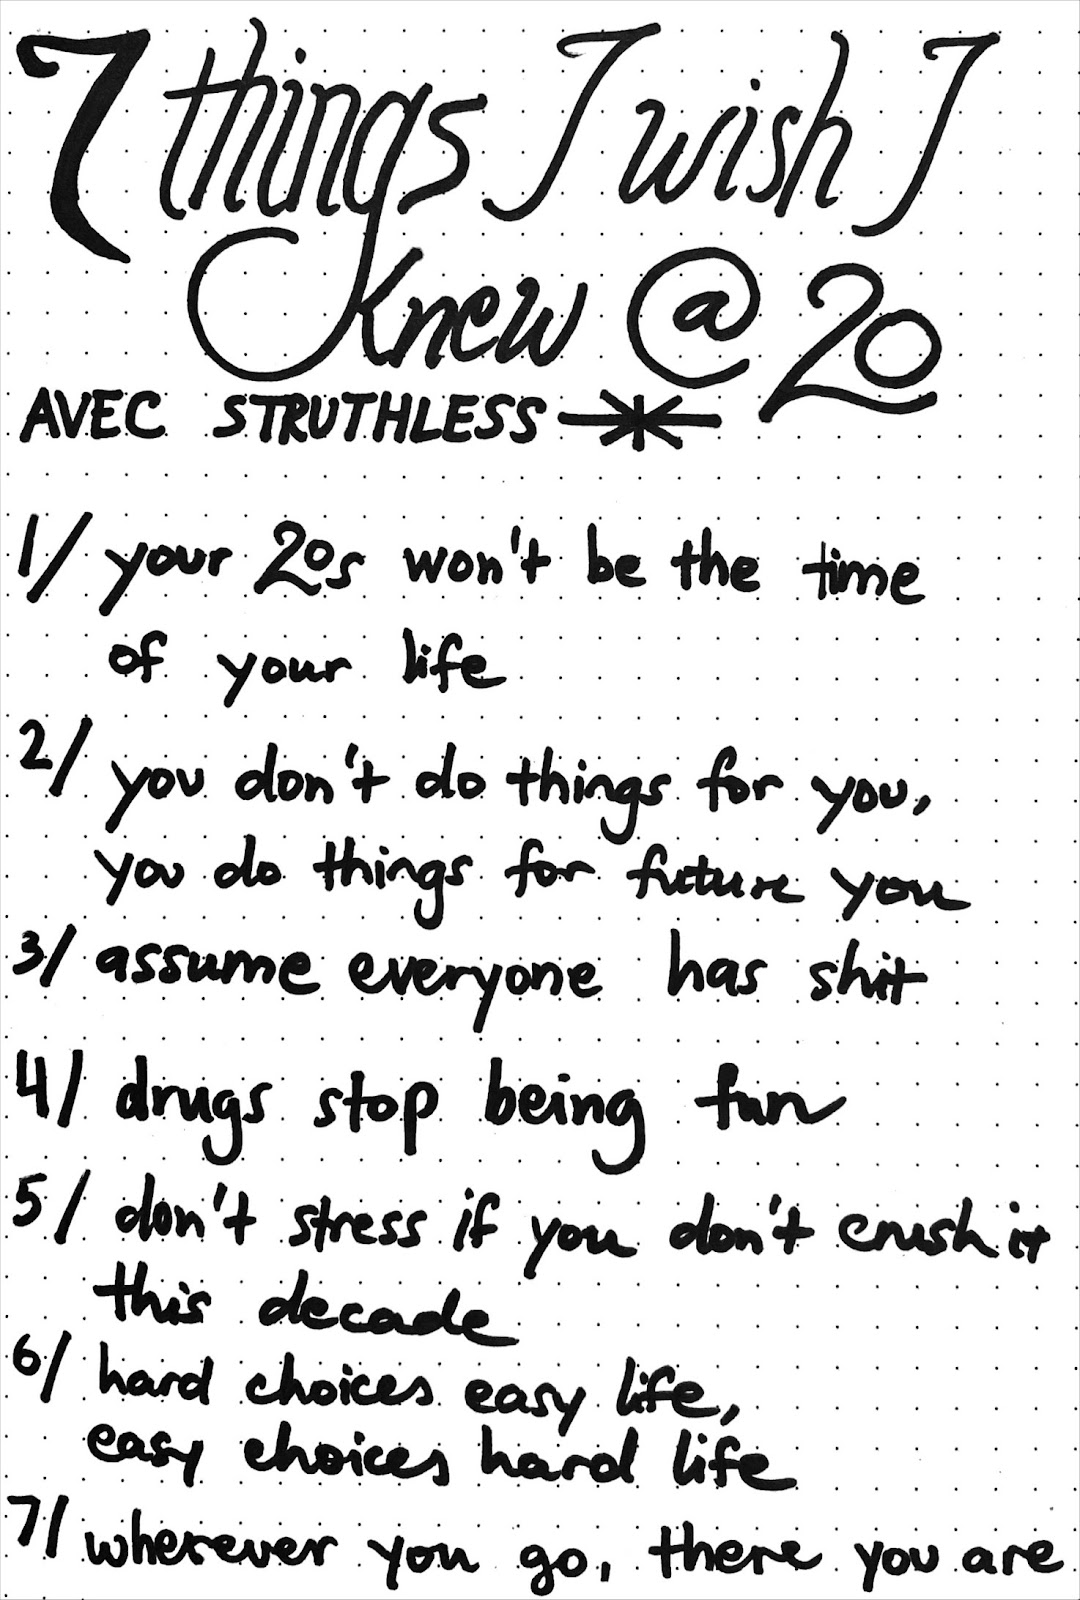 7 things I wish I
knew @ 20
AVEC STRUTHLESS
1/ your 20s won't be the time
of your life
2/ you don't do things for you,
you do things for future you
3/ assume everyone has shit
4/ drugs stop being fun
5/ don't stress if you don't crush it
this decade
6/ hard choices easy life,
easy choices hard life
7/ wherever you go, there you are